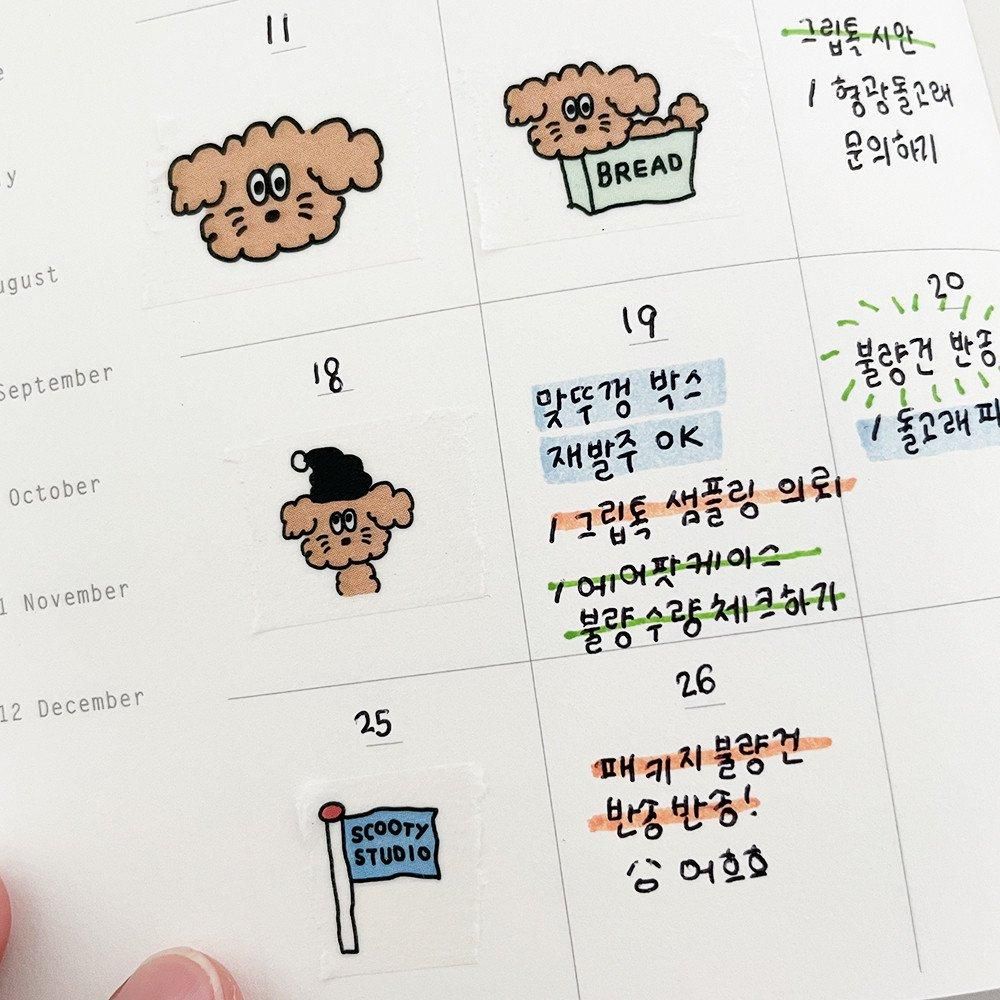 11
BREAD
그립톡 시안
/ 형광돌고래
문의하기
August
September
October
11 November
12 December
18
19
맞뚜껑 박스
재발주 OK
/ 그립톡 샘플링 의뢰
/ 에어팟케이스
불량 수량 체크하기
20
불량건 반송
/ 돌고래 파
25
SCOOTY
STUDIO
26
패키지 불량건
반송 반송!
어흐흐